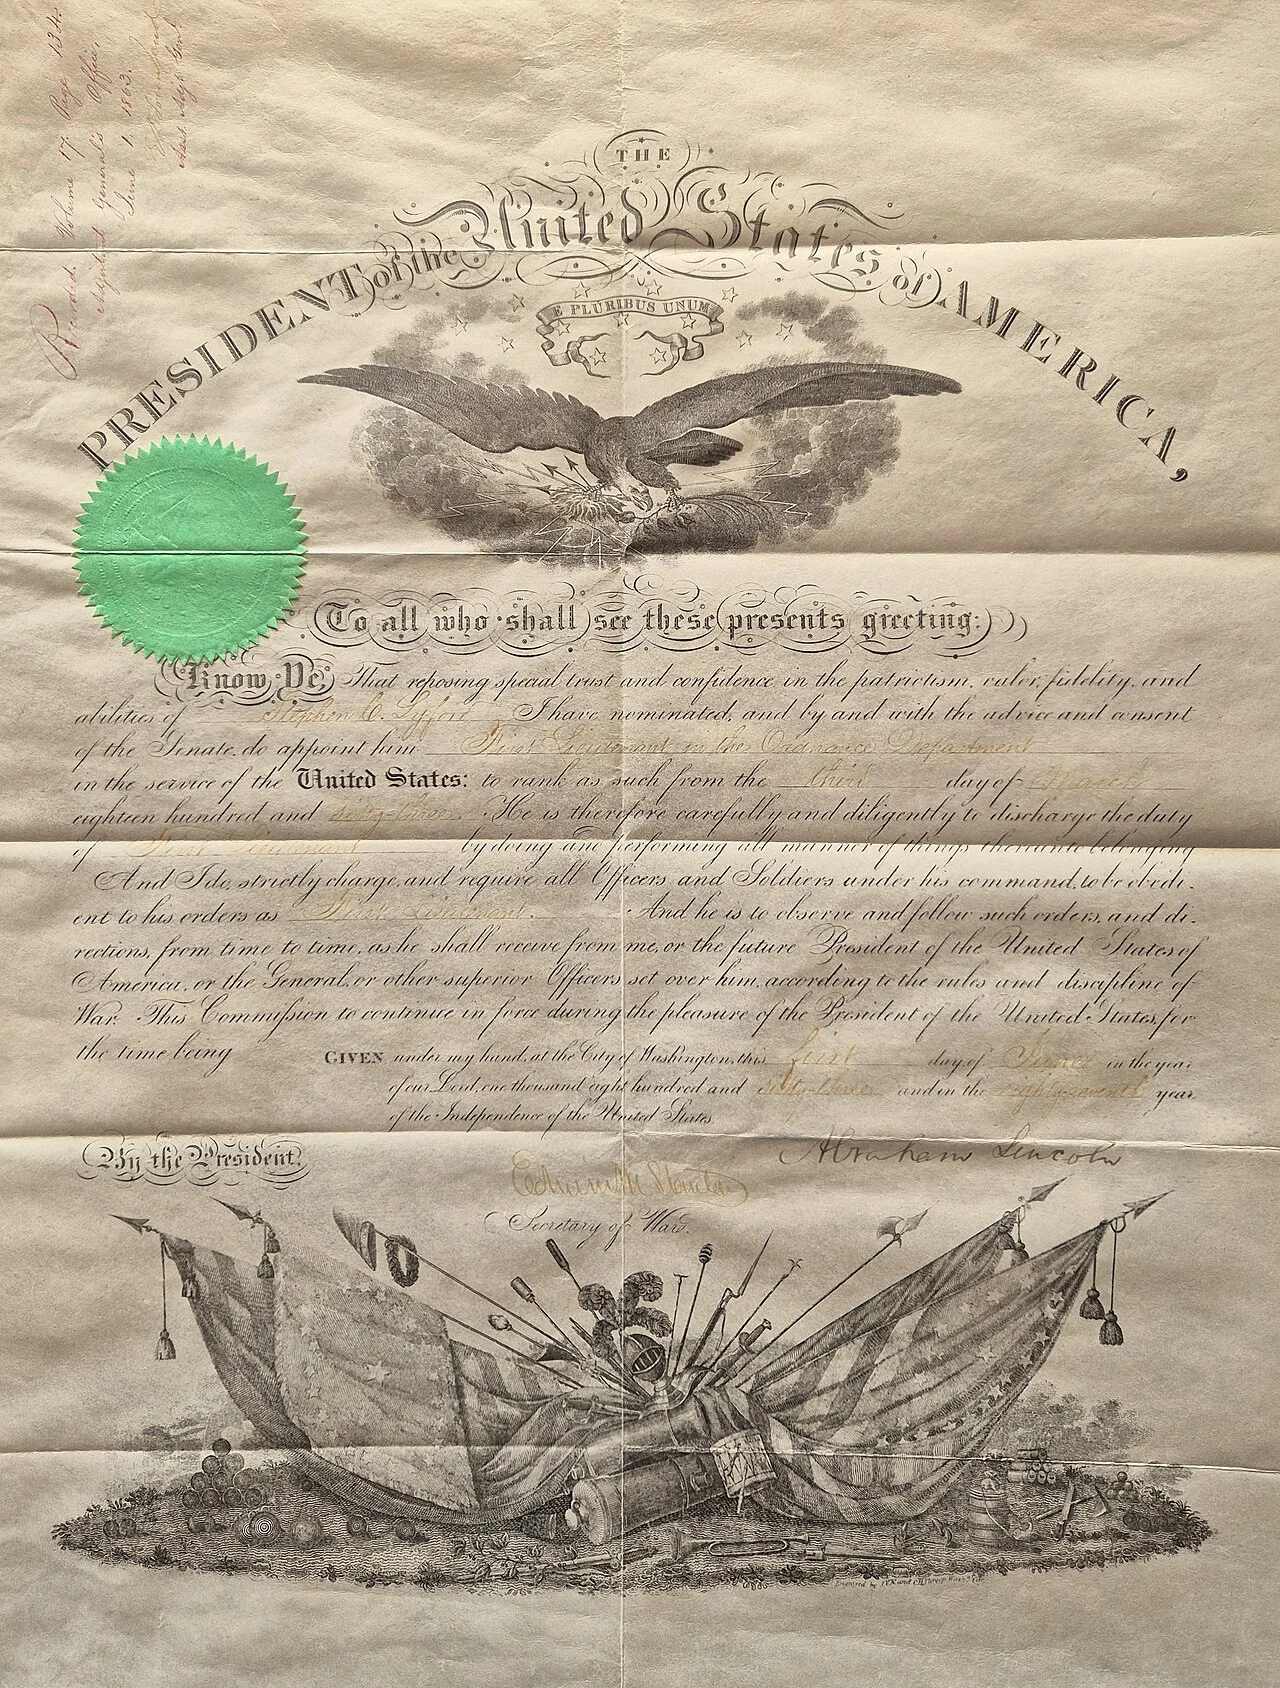 Recorded Volume 17 Page 134.
Adjutant General's Office,
June 1. 1863.
Asst. Adjt. Genl.
THE
PRESIDENT of the United States of AMERICA,
E PLURIBUS UNUM
To all who shall see these presents greeting:
Know Ye, That reposing special trust and confidence in the patriotism, valor, fidelity, and
abilities of Stephen C. Lyford I have nominated, and by and with the advice and consent
of the Senate, do appoint him First Lieutenant in the Ordnance Department
in the service of the United States: to rank as such from the third day of
eighteen hundred and sixty-three. He is therefore carefully and diligently to discharge the duty
of First Lieutenant by doing and performing all manner of things thereunto belonging
And I do, strictly charge, and require all Officers and Soldiers under his command, to be obedi-
ent to his orders as First Lieutenant. And he is to observe and follow such orders, and di-
rections, from time to time, as he shall receive from me, or the future President of the United States of
America, or the General, or other superior Officers set over him, according to the rules and discipline of
War. This Commission to continue in force during the pleasure of the President of the United States, for
the time being
GIVEN under my hand, at the City of Washington, this first day of June in the year
of our Lord, one thousand eight hundred and sixty-three and in the eighty-seventh year
of the Independence of the United States.
By the President,
Abraham Lincoln
Edwin M Stanton
Secretary of War.
Engraved by